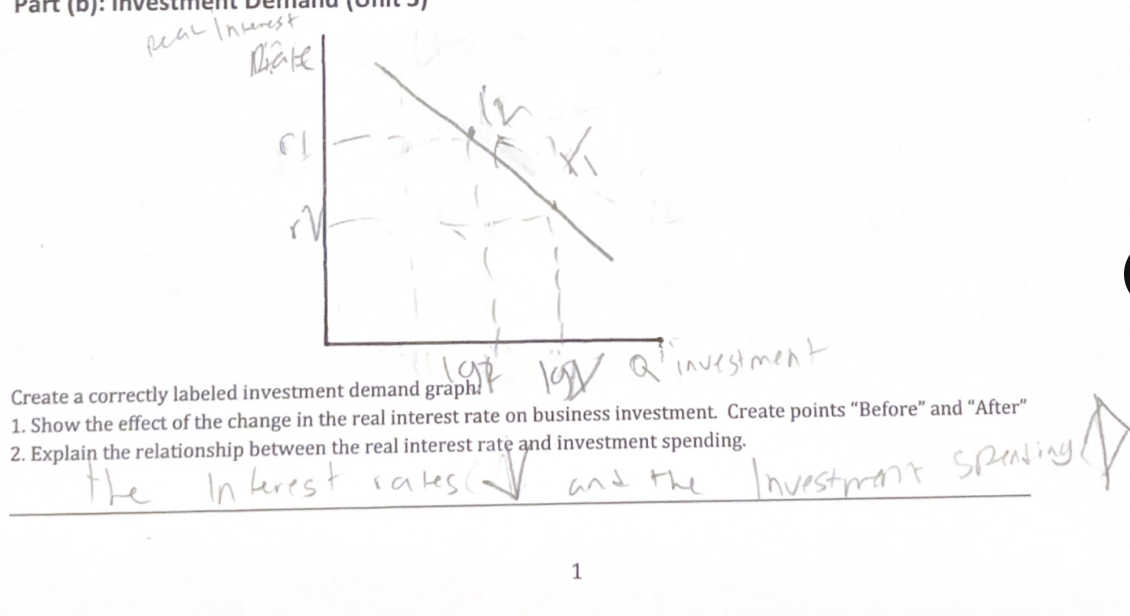 Part (b): Investment Demand (Unit 3)
Real Interest
Rate
r1
Q investment
Create a correctly labeled investment demand graph.
1. Show the effect of the change in the real interest rate on business investment. Create points “Before” and “After”
2. Explain the relationship between the real interest rate and investment spending.
the Interest rates ↓ and the Investment spending ↑
1